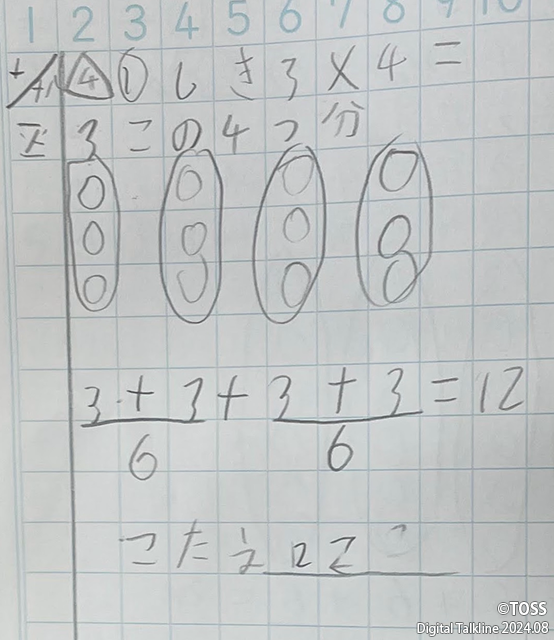 1 2 3 4 5 6 7 8 9 10
④ ① しき 3×4=
3この4つ分
3+3+3+3=12
6 6
こたえ 12こ
©TOSS
Digital Talkline 2024.08